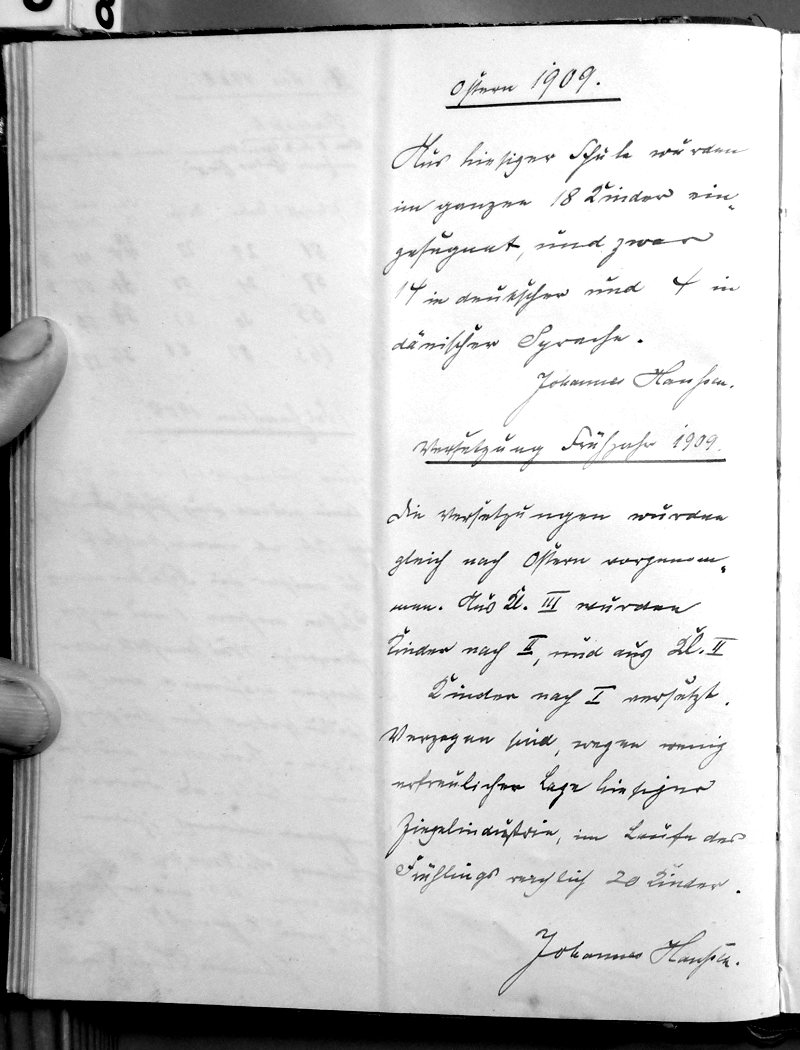 Ostern 1909.
Aus hiesiger Schule wurden
im ganzen 18 Kinder ein-
gesegnet, und zwar
14 in deutscher und 4 in
dänischer Sprache.
Johannes Hanssen.
Versetzung Frühjahr 1909.
Die Versetzungen wurden
gleich nach Ostern vorgenom-
men. Aus Kl. III wurden
Kinder nach II, und aus Kl. II
Kinder nach I versetzt.
Verzogen sind, wegen wenig
erfreulicher Lage hiesiger
Ziegelindustrie, im Laufe des
Frühlings reichlich 20 Kinder.
Johannes Hanssen.